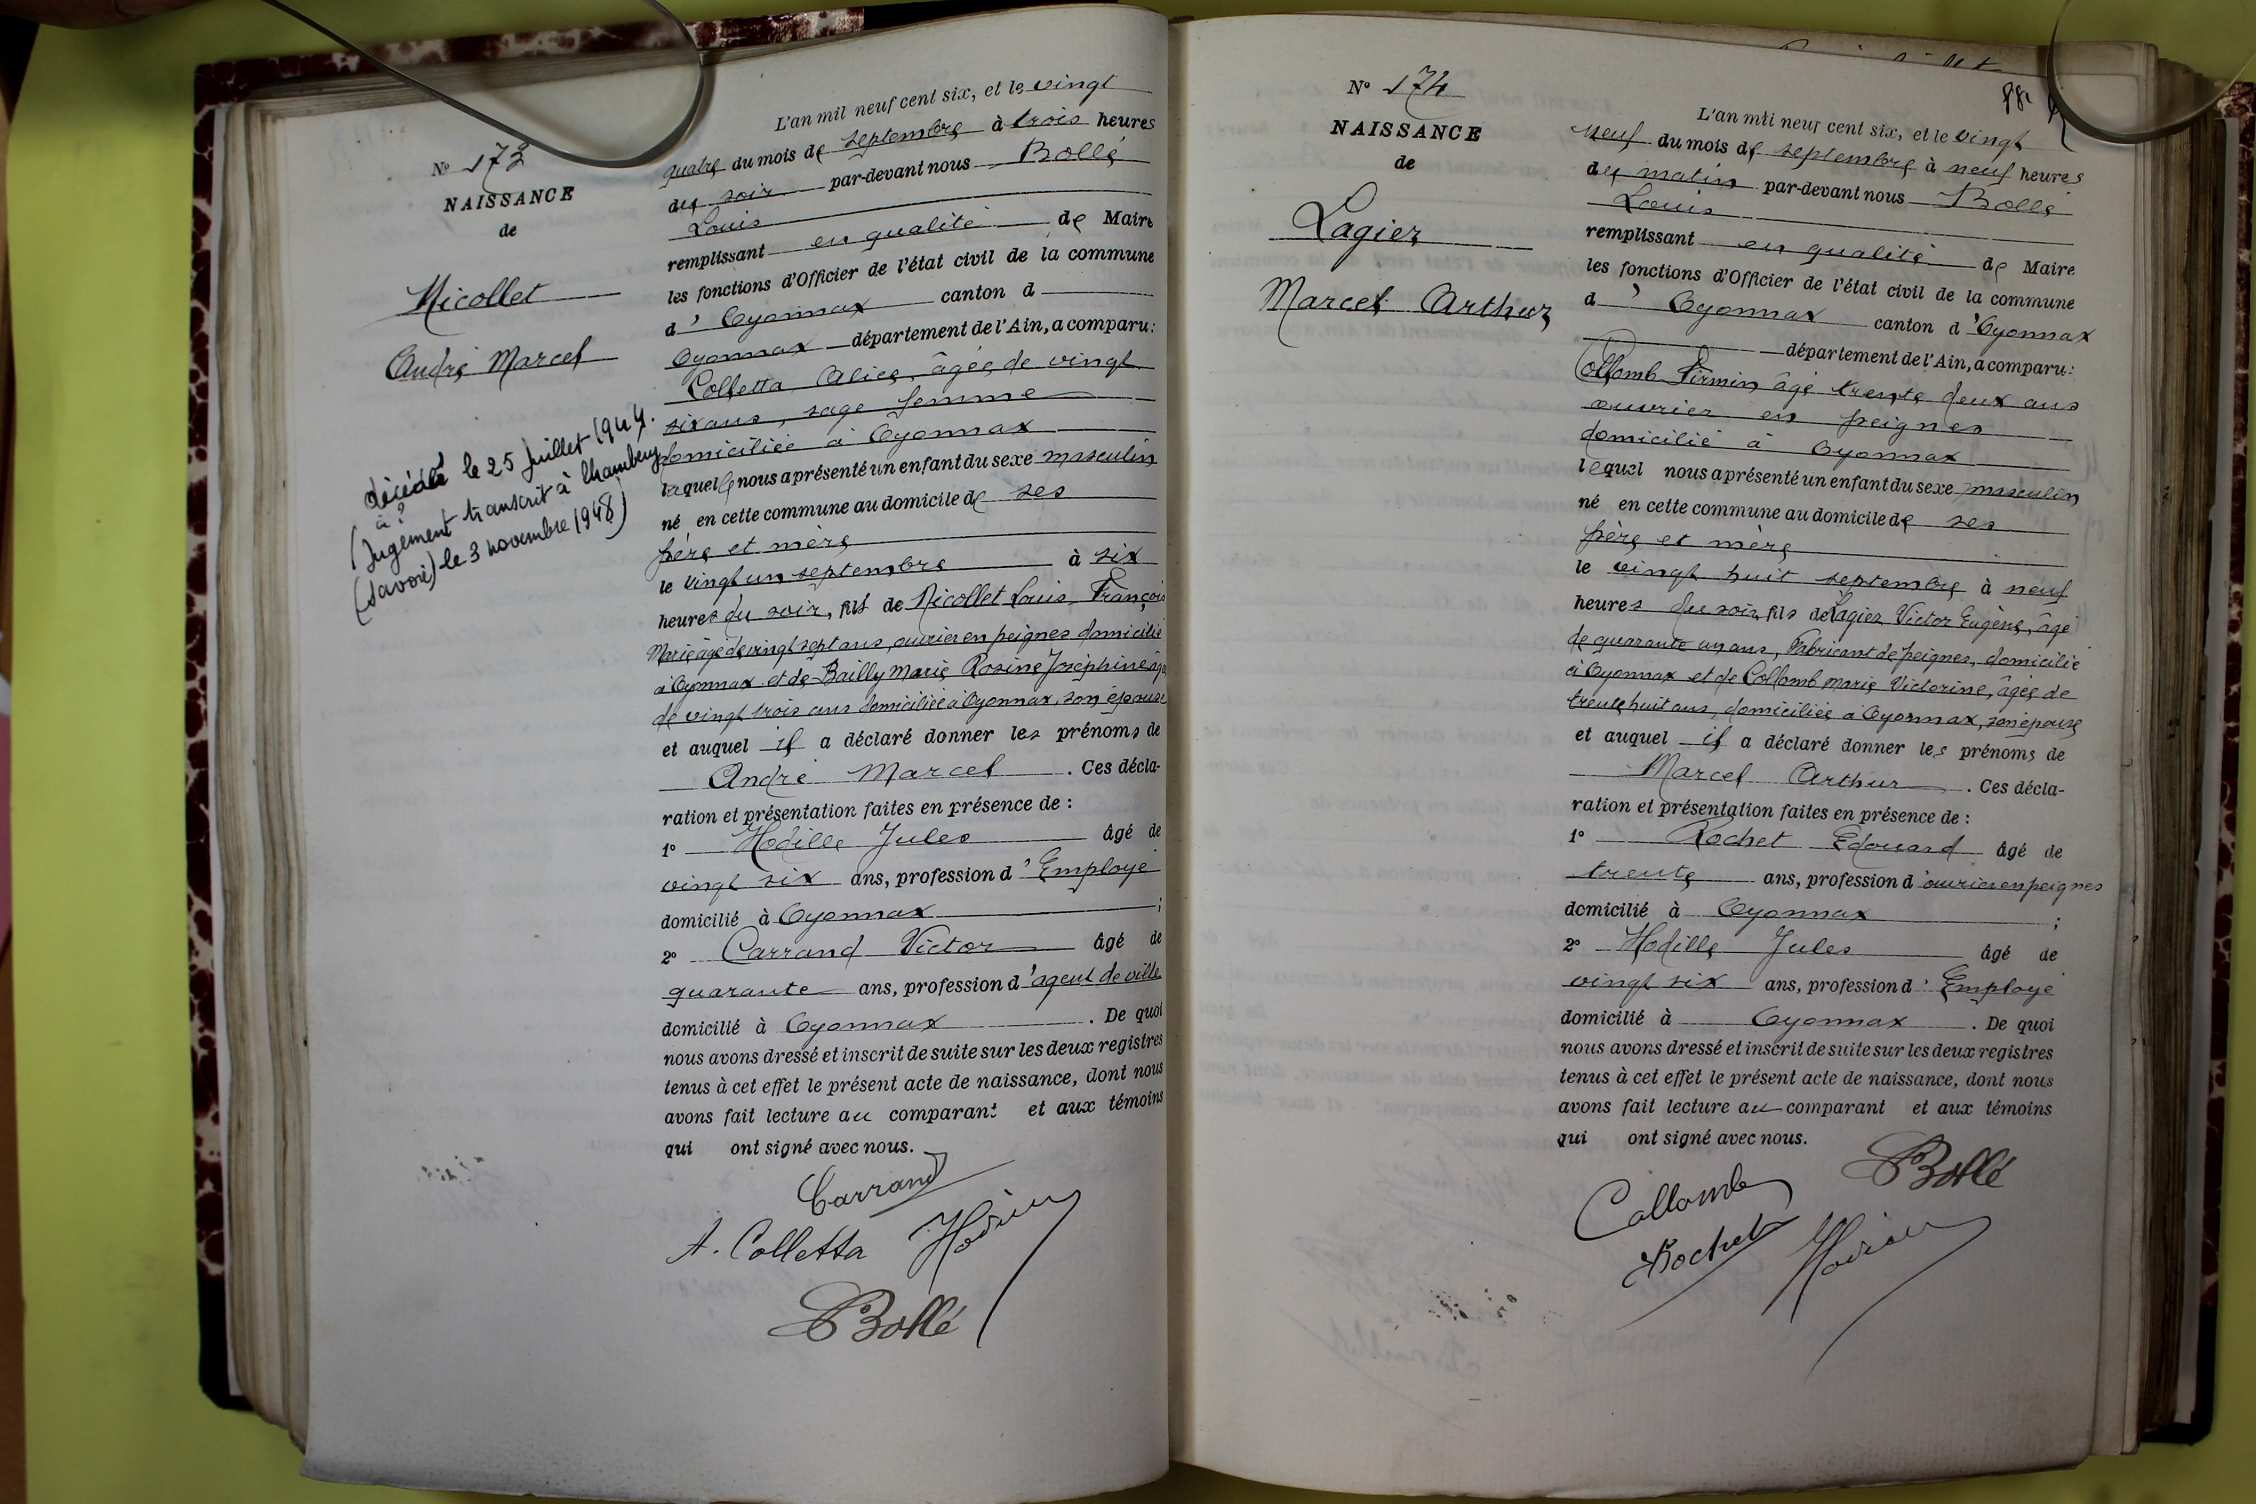 N° 173
NAISSANCE
de
Nicollet
André Marcel
décédé le 25 juillet 1944.
à ?
(Jugement transcrit à Chambéry
(Savoie) le 3 novembre 1948)
L'an mil neuf cent six, et le vingt
quatre du mois de septembre à trois heures
du soir par-devant nous Bollé
Louis
remplissant en qualité de Maire
les fonctions d'Officier de l'état civil de la commune
d' Oyonnax canton d
Oyonnax département de l'Ain, a comparu:
Colletta Alice, âgée de vingt
six ans, sage femme
domiciliée à Oyonnax
laquelle nous a présenté un enfant du sexe masculin
né en cette commune au domicile de ses
père et mère
le vingt un septembre à six
heures du soir, fils de Nicollet Louis François
Marie âgé de vingt sept ans, ouvrier en peignes domicilié
à Oyonnax et de Bailly Marie Rosine Joséphine âgée
de vingt trois ans domiciliée à Oyonnax, son épouse
et auquel il a déclaré donner les prénoms de
André Marcel. Ces décla-
ration et présentation faites en présence de :
1° Hodille Jules âgé de
vingt six ans, profession d' Employé
domicilié à Oyonnax ;
2° Carrand Victor âgé de
quarante ans, profession d'agent de ville
domicilié à Oyonnax. De quoi
nous avons dressé et inscrit de suite sur les deux registres
tenus à cet effet le présent acte de naissance, dont nous
avons fait lecture au comparant et aux témoins
qui ont signé avec nous.
Carrand
A. Colletta
Bollé
88
N° 174
NAISSANCE
de
Lagier
Marcel Arthur
L'an mil neuf cent six, et le vingt
neuf du mois de septembre à neuf heures
du matin par-devant nous Bollé
Louis
remplissant en qualité de Maire
les fonctions d'Officier de l'état civil de la commune
d' Oyonnax canton d'Oyonnax
département de l'Ain, a comparu:
Collomb Firmin âgé trente deux ans
ouvrier en peignes
domicilié à Oyonnax
lequel nous a présenté un enfant du sexe masculin
né en cette commune au domicile de ses
père et mère
le vingt huit septembre à neuf
heures du soir, fils de Lagier Victor Eugène, âgé
de quarante un ans, Fabricant de peignes, domicilié
à Oyonnax et de Collomb Marie Victorine, âgée de
trente huit ans, domiciliée à Oyonnax, son épouse
et auquel il a déclaré donner les prénoms de
Marcel Arthur. Ces décla-
ration et présentation faites en présence de :
1° Rochet Edouard âgé de
trente ans, profession d'ouvrier en peignes
domicilié à Oyonnax ;
2° Hodille Jules âgé de
vingt six ans, profession d' Employé
domicilié à Oyonnax. De quoi
nous avons dressé et inscrit de suite sur les deux registres
tenus à cet effet le présent acte de naissance, dont nous
avons fait lecture au comparant et aux témoins
qui ont signé avec nous.
Bollé
Collomb
Rochet